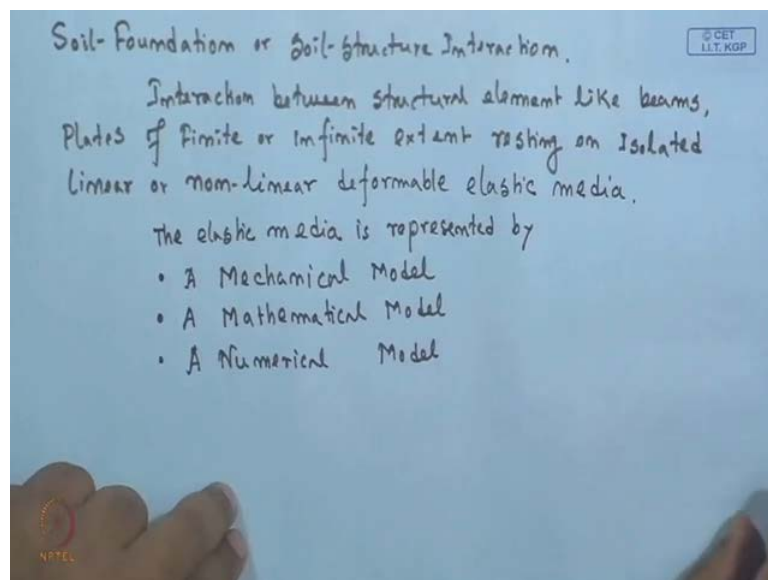 Soil-Foundation or Soil-Structure Interaction.
© CET
I.I.T. KGP
Interaction between structural element like beams,
Plates of Finite or Infinite extent resting on Isolated
linear or non-linear deformable elastic media.
The elastic media is represented by
• A Mechanical Model
• A Mathematical Model
• A Numerical Model
NPTEL